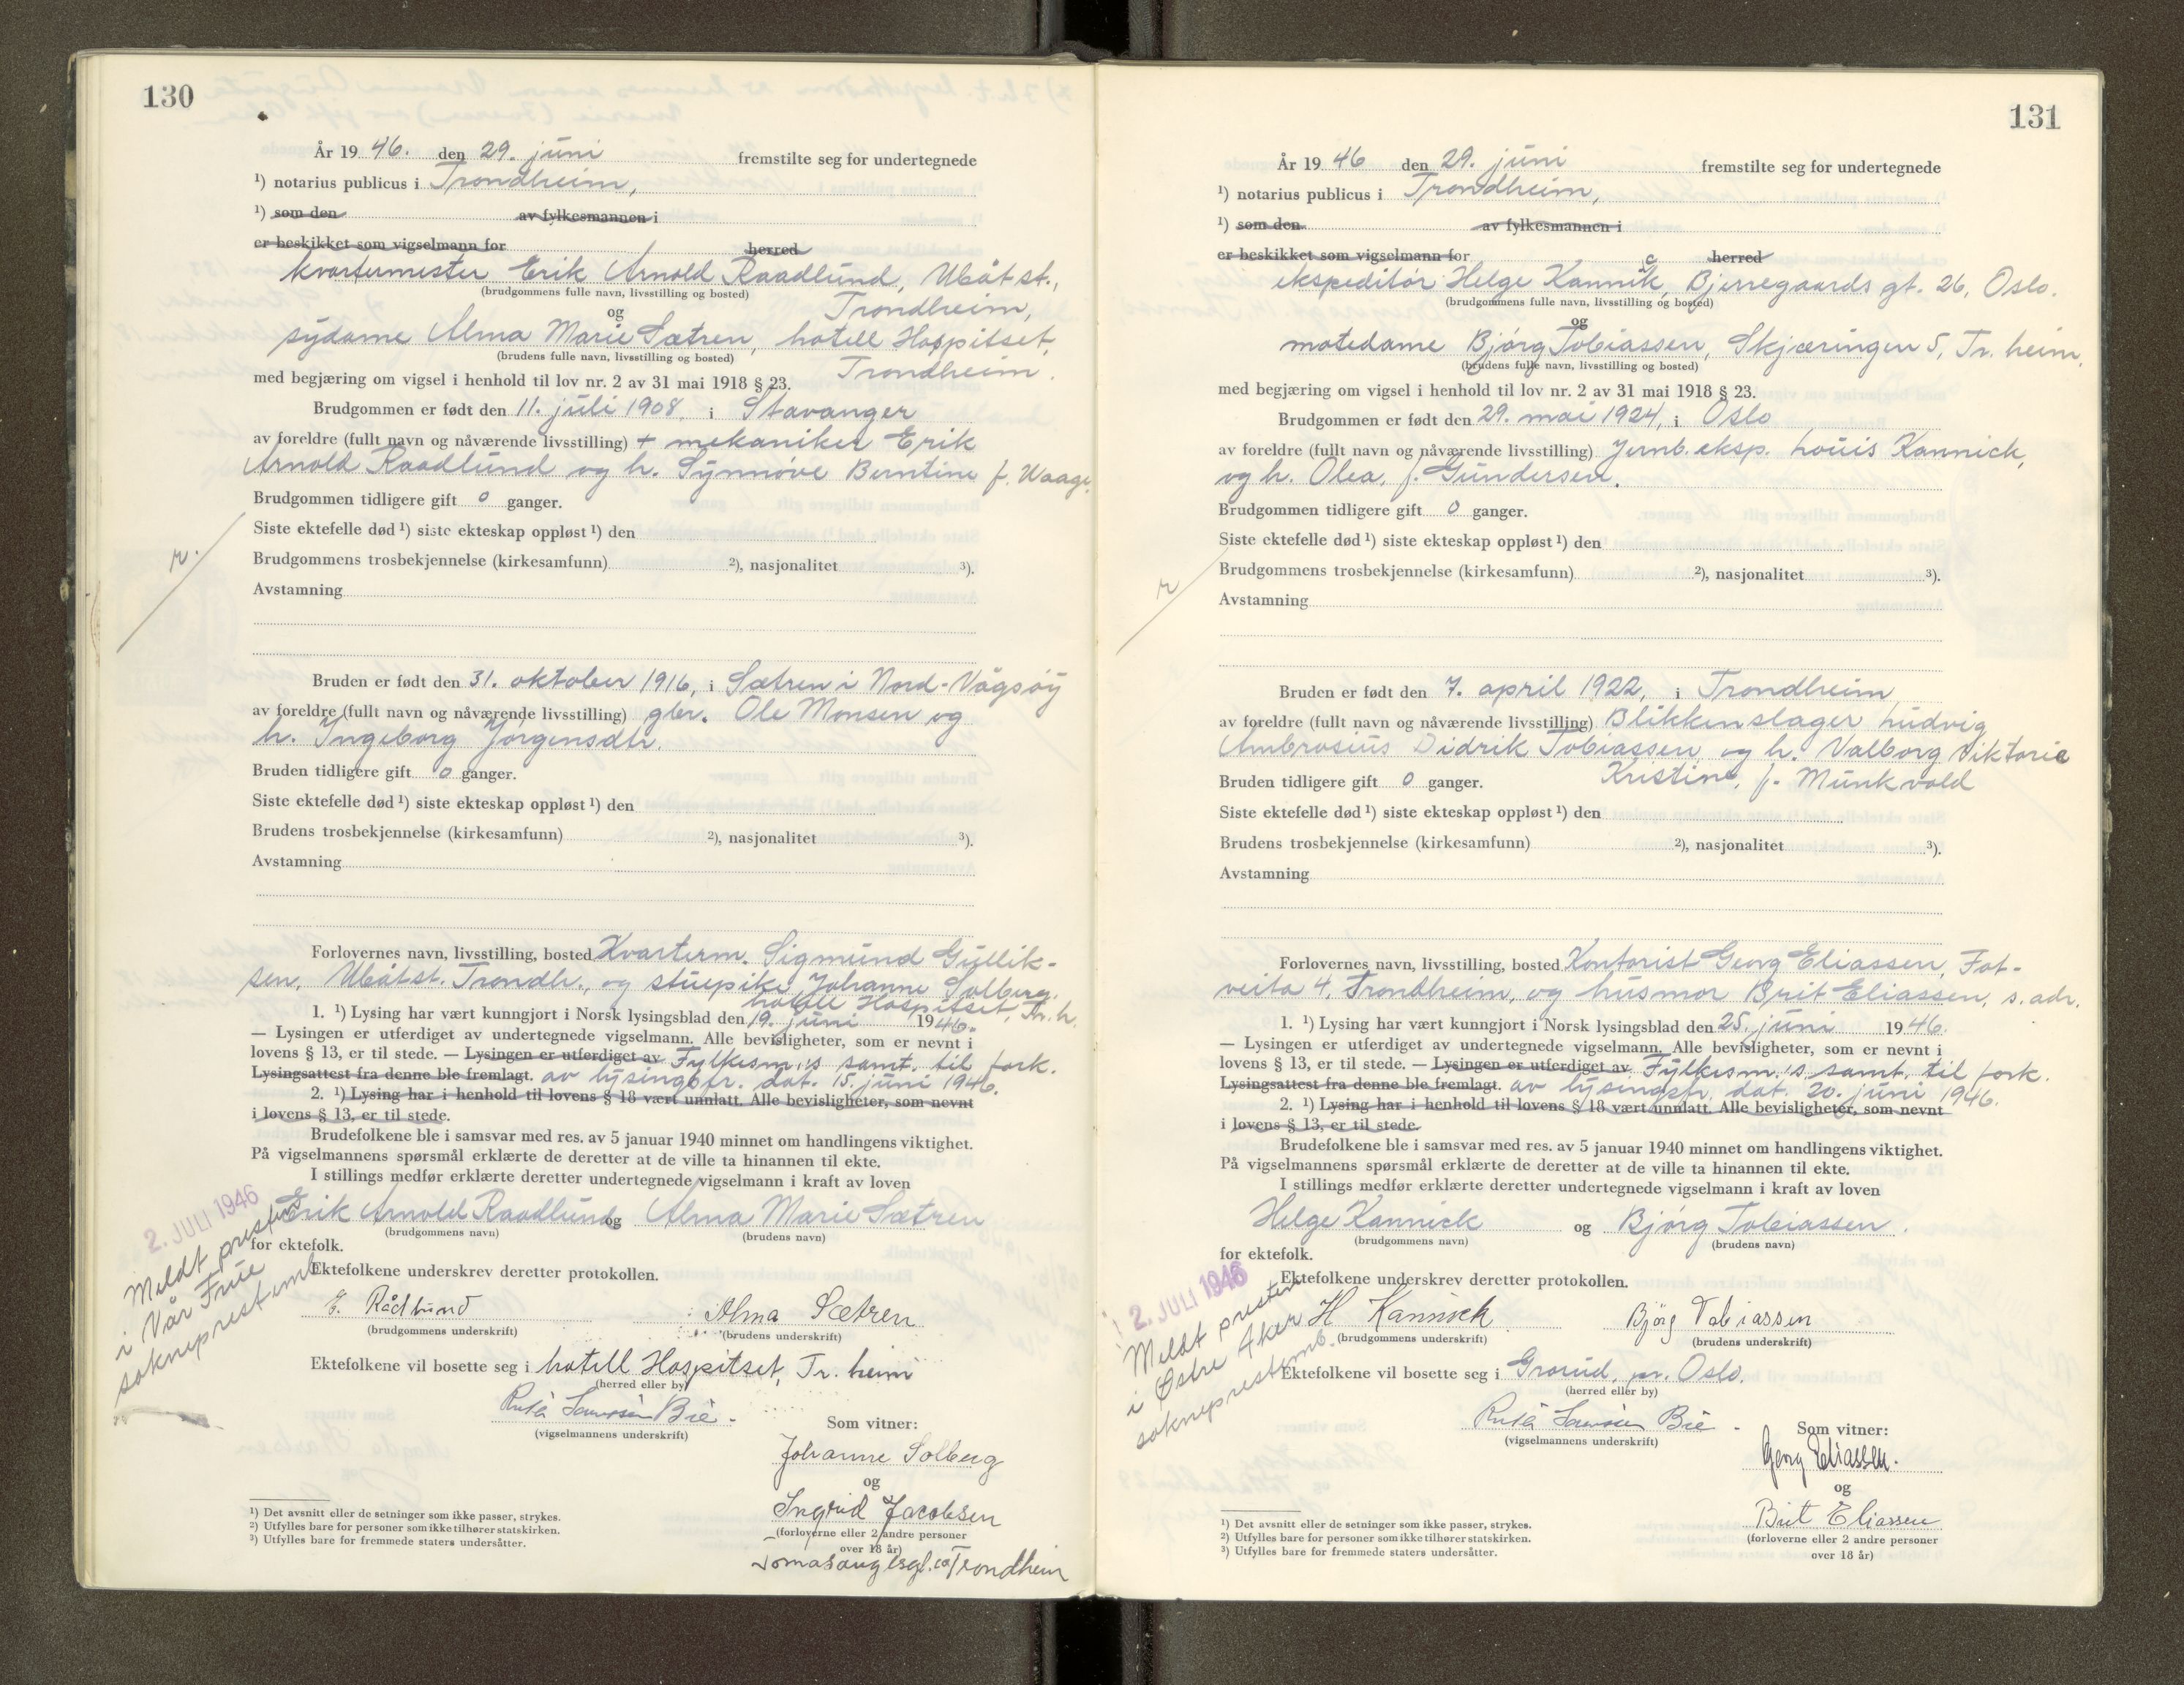 130
År 19 46. den 29. juni fremstilte seg for undertegnede
¹) notarius publicus i Trondheim,
¹) som den av fylkesmannen i
er beskikket som vigselmann for herred
kvartermester Erik Arnold Raadlund, Ubåtst.,
(brudgommens fulle navn, livsstilling og bosted)
Trondheim,
og
sydame Alma Marie Sætren, hotell Hospitset,
(brudens fulle navn, livsstilling og bosted)
Trondheim.
med begjæring om vigsel i henhold til lov nr. 2 av 31 mai 1918 § 23.
Brudgommen er født den 11. juli 1908, i Stavanger
av foreldre (fullt navn og nåværende livsstilling) + mekaniker Erik
Arnold Raadlund og h. Synnøve Berntine f. Waage.
Brudgommen tidligere gift 0 ganger.
Siste ektefelle død ¹) siste ekteskap oppløst ¹) den
r.
Brudgommens trosbekjennelse (kirkesamfunn) ²), nasjonalitet ³).
Avstamning
Bruden er født den 31. oktober 1916, i Sætren i Nord-Vågsøy
av foreldre (fullt navn og nåværende livsstilling) gbr. Ole Monsen og
h. Ingeborg Jørgensdtr.
Bruden tidligere gift 0 ganger.
Siste ektefelle død ¹) siste ekteskap oppløst ¹) den
Brudens trosbekjennelse (kirkesamfunn) ²), nasjonalitet ³).
Avstamning
Forlovernes navn, livsstilling, bosted Kvarterm. Sigmund Gullik-
sen, Ubåtst. Trondh., og stuepike Johanne Solberg,
hotell Hospitset, Tr.h.
1. ¹) Lysing har vært kunngjort i Norsk lysingsblad den 19. juni 1946.
— Lysingen er utferdiget av undertegnede vigselmann. Alle bevisligheter, som er nevnt i
lovens § 13, er til stede. — Lysingen er utferdiget av Fylkesm.'s samt. til fork.
Lysingsattest fra denne ble fremlagt. av lysingsfr. dat. 15. juni 1946.
2. ¹) Lysing har i henhold til lovens § 18 vært unnlatt. Alle bevisligheter, som nevnt
i lovens § 13, er til stede.
Brudefolkene ble i samsvar med res. av 5 januar 1940 minnet om handlingens viktighet.
På vigselmannens spørsmål erklærte de deretter at de ville ta hinannen til ekte.
I stillings medfør erklærte deretter undertegnede vigselmann i kraft av loven
Erik Arnold Raadlund og Alma Marie Sætren
(brudgommens navn) (brudens navn)
for ektefolk.
2. JULI 1946
Meldt presten
i Vår Frue
sokneprestemb.
Ektefolkene underskrev deretter protokollen.
E. Rådlund Alma Sætren
(brudgommens underskrift) (brudens underskrift)
Ektefolkene vil bosette seg i hotell Hospitset, Tr. heim
(herred eller by)
(vigselmannens underskrift)
Som vitner:
Johanne Solberg
og
Ingrid Jacobsen
(forloverne eller 2 andre personer
over 18 år)
Trondheim
¹) Det avsnitt eller de setninger som ikke passer, strykes.
²) Utfylles bare for personer som ikke tilhører statskirken.
³) Utfylles bare for fremmede staters undersåtter.
131
År 19 46 den 29. juni fremstilte seg for undertegnede
¹) notarius publicus i Trondheim,
¹) som den av fylkesmannen i
er beskikket som vigselmann for herred
ekspeditør Helge Kannik, Bjerregaards gt. 26, Oslo.
c
(brudgommens fulle navn, livsstilling og bosted)
og
motedame Bjørg Tobiassen, Skjæringen 5, Tr. heim,
(brudens fulle navn, livsstilling og bosted)
med begjæring om vigsel i henhold til lov nr. 2 av 31 mai 1918 § 23.
Brudgommen er født den 29. mai 1924, i Oslo
av foreldre (fullt navn og nåværende livsstilling) Jernb.eksp. Louis Kannick,
og h. Olea, f. Gundersen.
Brudgommen tidligere gift 0 ganger.
Siste ektefelle død ¹) siste ekteskap oppløst ¹) den
r
Brudgommens trosbekjennelse (kirkesamfunn) ²), nasjonalitet ³).
Avstamning
Bruden er født den 7. april 1922, i Trondheim
av foreldre (fullt navn og nåværende livsstilling) Blikkenslager Ludvig
Ambrosius Didrik Tobiassen, og h. Valborg Viktoria
Kristine, f. Munkvold
Bruden tidligere gift 0 ganger.
Siste ektefelle død ¹) siste ekteskap oppløst ¹) den
Brudens trosbekjennelse (kirkesamfunn) ²), nasjonalitet ³).
Avstamning
Forlovernes navn, livsstilling, bosted Kontorist Georg Eliassen, Fot-
veita 4, Trondheim, og husmor Brit Eliassen, s. adr.
1. ¹) Lysing har vært kunngjort i Norsk lysingsblad den 25. juni 1946.
— Lysingen er utferdiget av undertegnede vigselmann. Alle bevisligheter, som er nevnt i
lovens § 13, er til stede. — Lysingen er utferdiget av Fylkesm.'s samt. til fork.
Lysingsattest fra denne ble fremlagt. av lysingsfr. dat. 20. juni 1946.
2. ¹) Lysing har i henhold til lovens § 18 vært unnlatt. Alle bevisligheter, som nevnt
i lovens § 13, er til stede.
Brudefolkene ble i samsvar med res. av 5 januar 1940 minnet om handlingens viktighet.
På vigselmannens spørsmål erklærte de deretter at de ville ta hinannen til ekte.
I stillings medfør erklærte deretter undertegnede vigselmann i kraft av loven
Helge Kannick og Bjørg Tobiassen.
(brudgommens navn) (brudens navn)
for ektefolk.
2. JULI 1946
Meldt presten
i Østre Aker
sokneprestemb.
Ektefolkene underskrev deretter protokollen.
H Kannick Bjørg Tobiassen
(brudgommens underskrift) (brudens underskrift)
Ektefolkene vil bosette seg i Grorud, pr. Oslo.
(herred eller by)
(vigselmannens underskrift)
Som vitner:
Georg Eliassen.
og
Brit Eliassen
(forloverne eller 2 andre personer
over 18 år)
¹) Det avsnitt eller de setninger som ikke passer, strykes.
²) Utfylles bare for personer som ikke tilhører statskirken.
³) Utfylles bare for fremmede staters undersåtter.